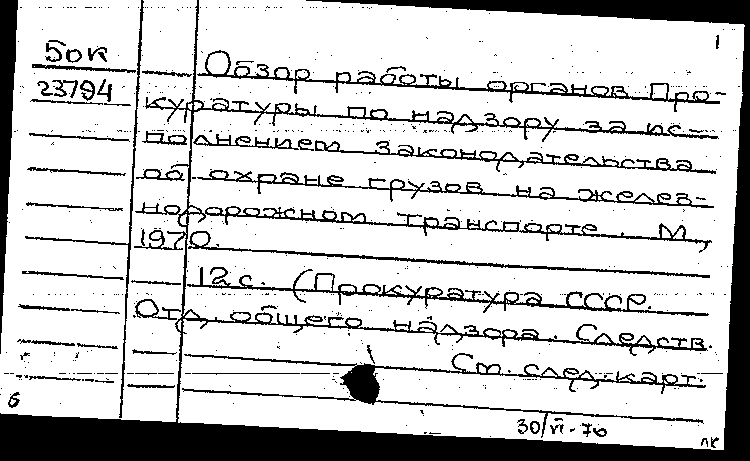 1
50к
23794
Обзор работы органов Про-
куратуры по надзору за ис-
полнением законодательства
об охране грузов на желез-
нодорожном транспорте. М.,
1970.
12 с. (Прокуратура СССР.
Отд. общего надзора. Следств.
См. след. карт.
б
30/VI-76
лк